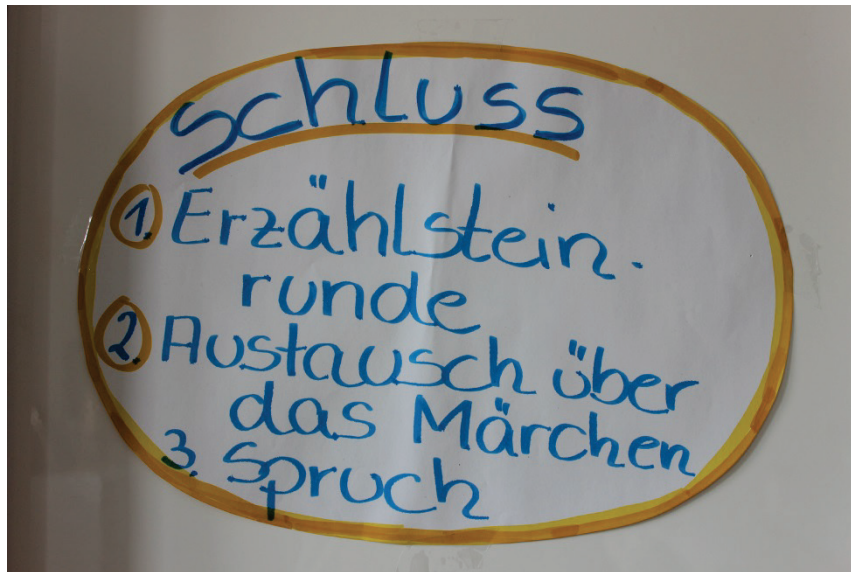 Schluss
1. Erzählstein-
runde
2. Austausch über
das Märchen
3. Spruch